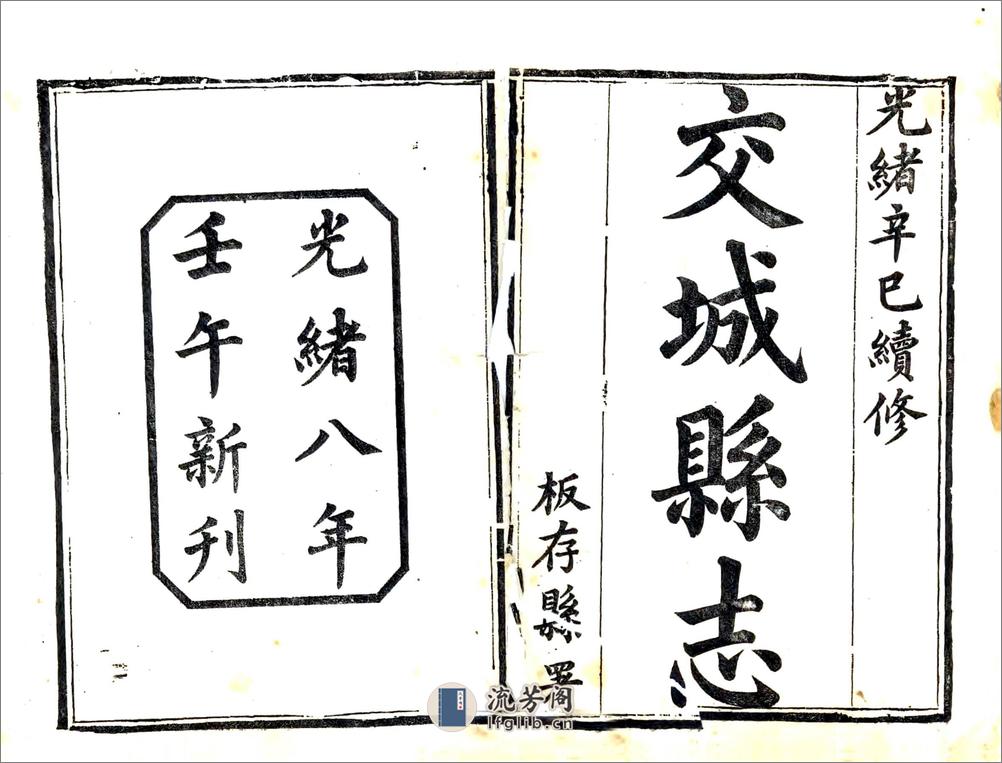 光緒辛巳續修
交城縣志
板存縣署
光緒八年
壬午新刊
流芳阁
lfglib.cn